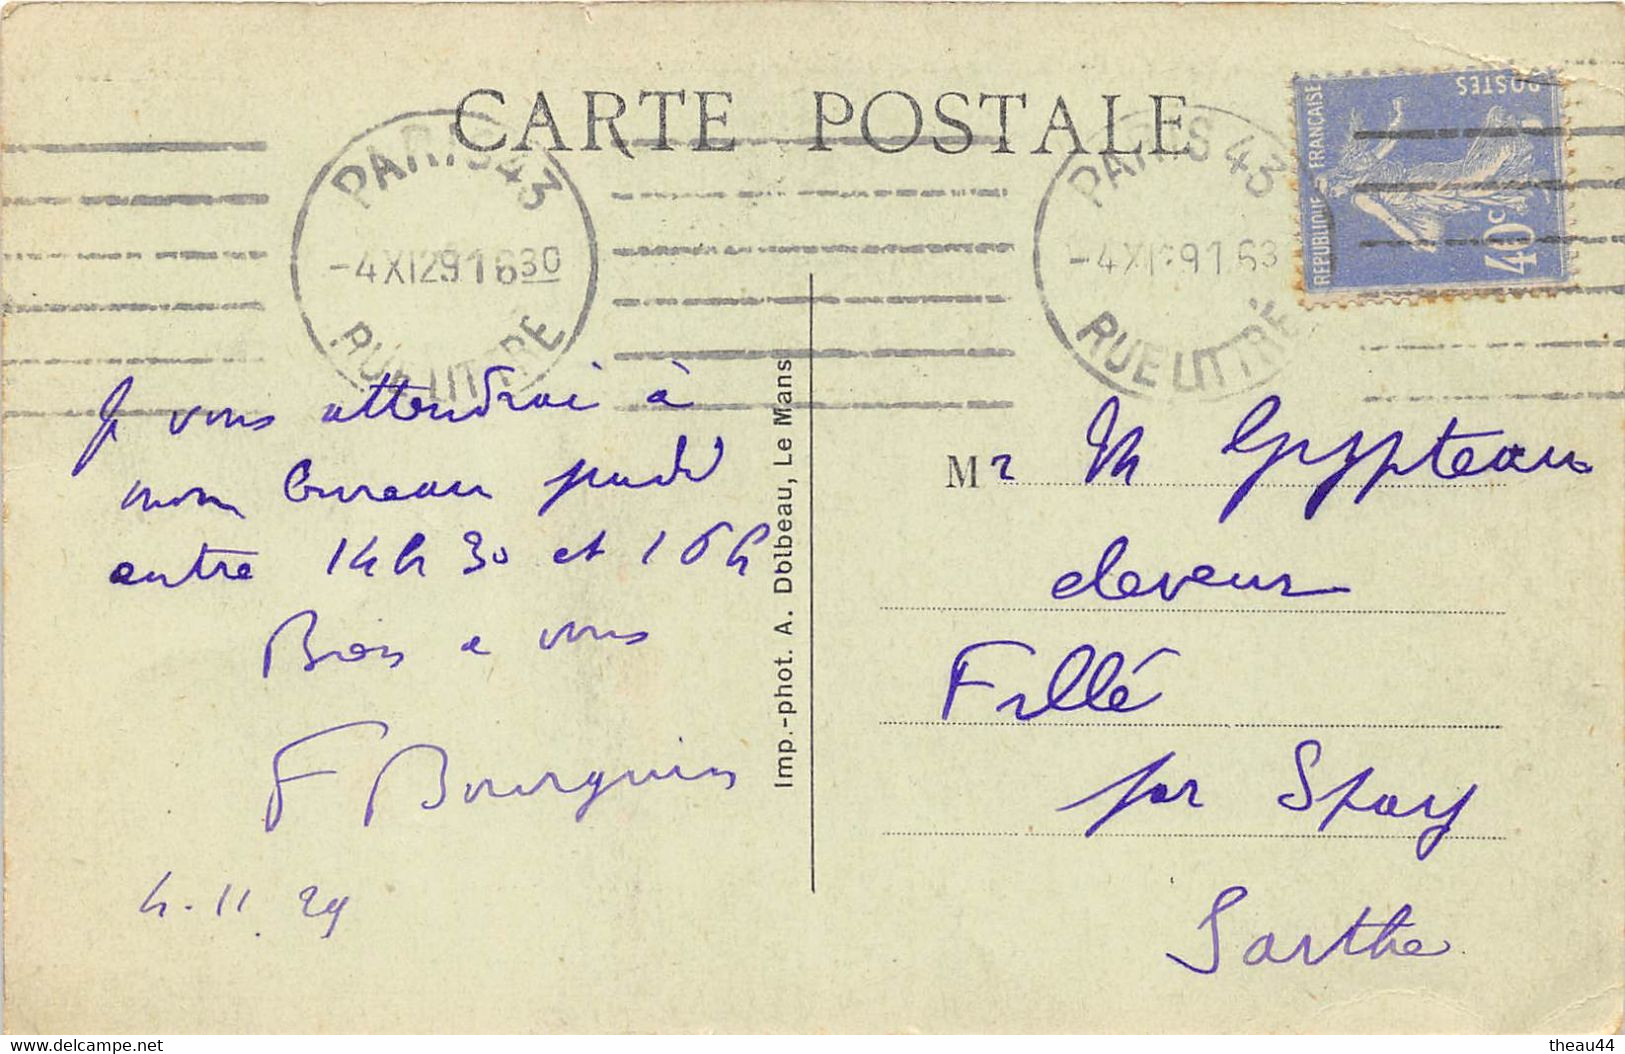 CARTE POSTALE
PARIS 43
-4 XI 29 1630
RUE LITTRE
PARIS 43
-4 XI 9 163
RUE LITTRE
REPUBLIQUE FRANCAISE
POSTES
40c
Je vous attendrai à
mon bureau jeudi
entre 14h30 et 16h
Bien à vous
F Bourguin
4.11.29
Imp.-phot. A. Dolbeau, Le Mans
Mr
eleveur
Fillé
par Spay
Sarthe
www.delcampe.net
theau44